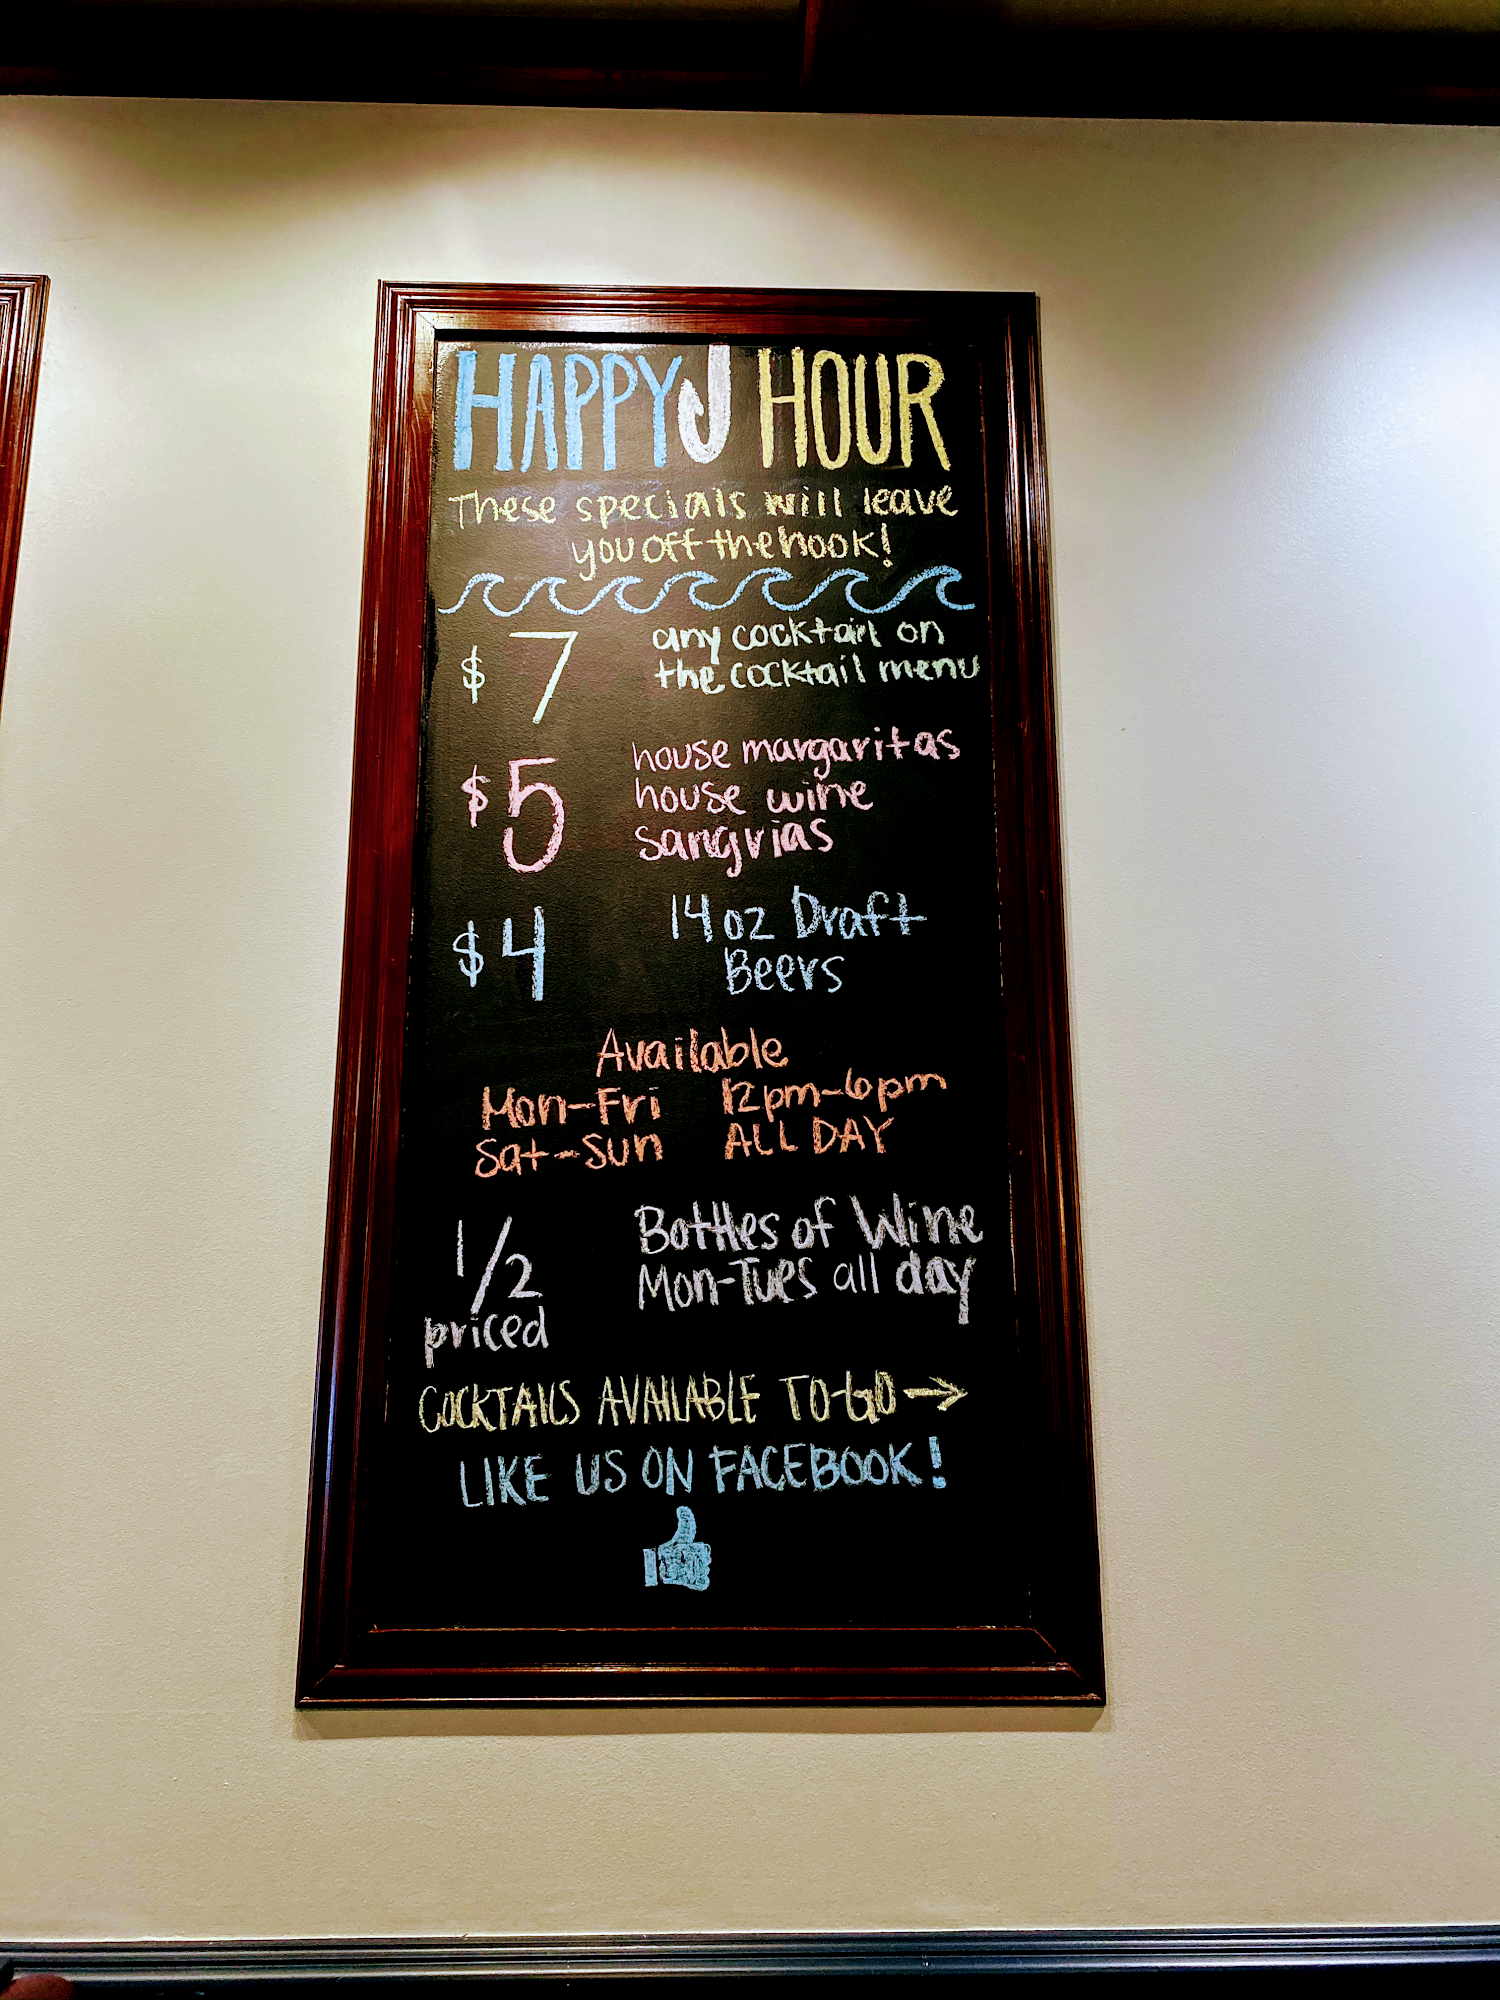 HAPPY HOUR
These specials will leave
you off the hook!
$7 any cocktail on
the cocktail menu
$5 house margaritas
house wine
sangrias
$4 14oz Draft
Beers
Available
Mon-Fri 12pm-6pm
Sat-Sun ALL DAY
1/2 priced Bottles of Wine
Mon-Tues all day
COCKTAILS AVAILABLE TO-GO →
LIKE US ON FACEBOOK!